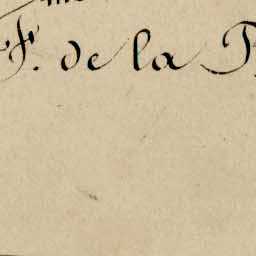 F. de la